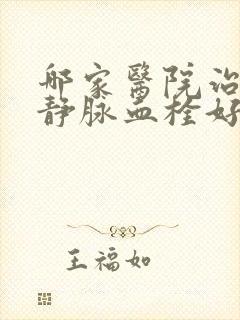 那家醫院治
静脉血栓好
王福如